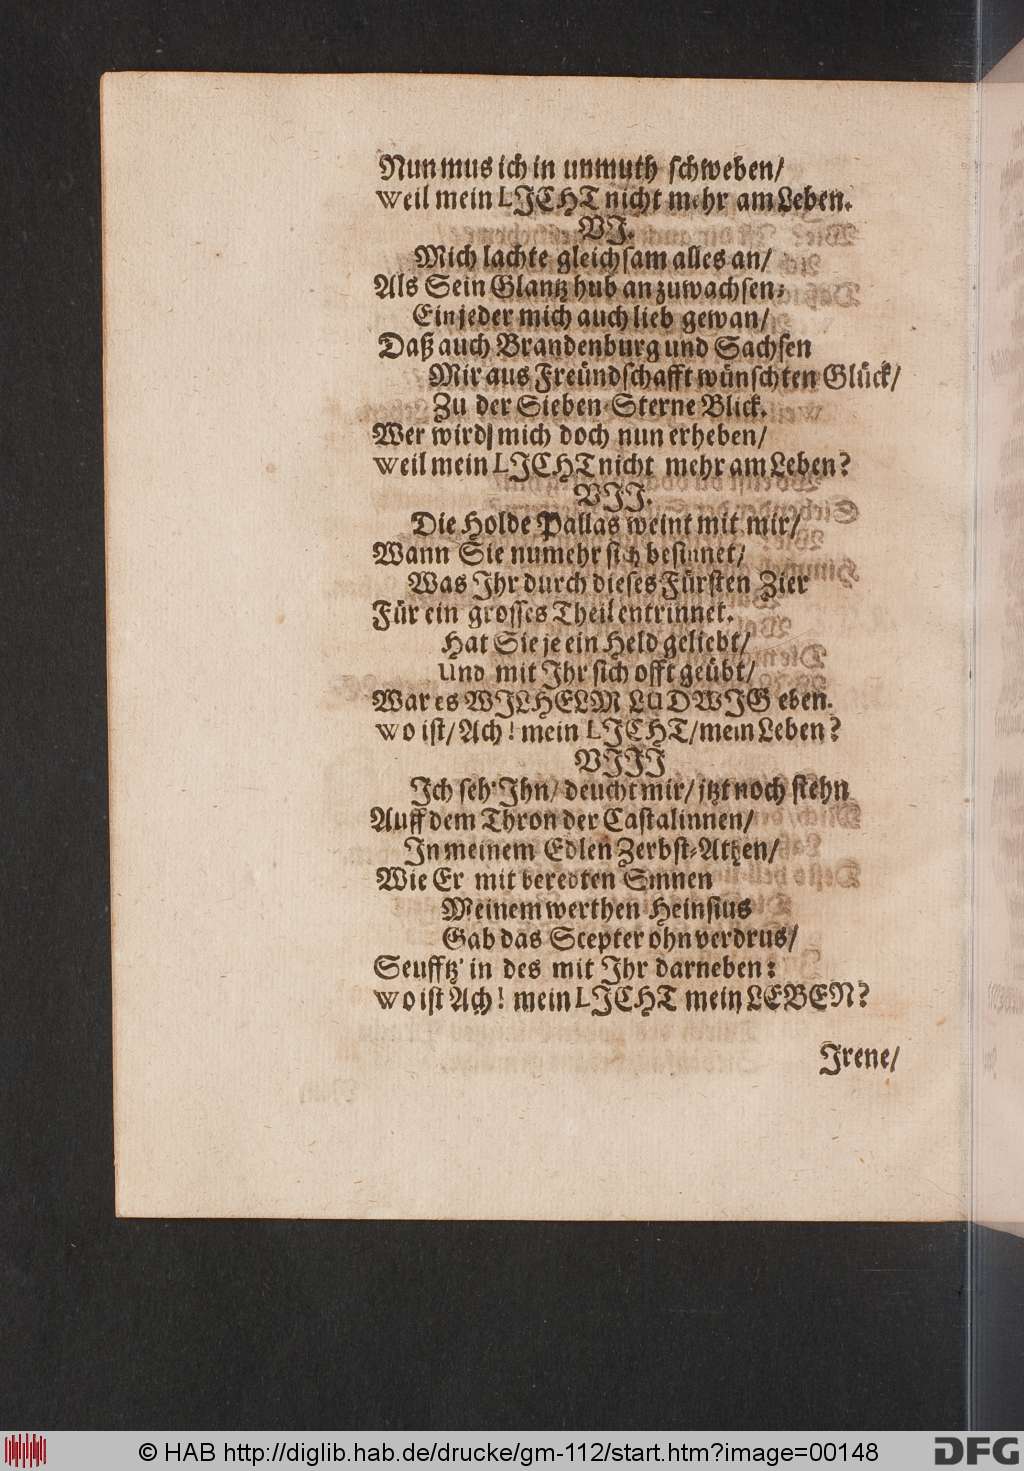 Nun mus ich in unmuth schweben/
weil mein LJCHT nicht mehr am Leben.
VJ.
Mich lachte gleichsam alles an/
Als Sein Glantz hub an zuwachsen;
Ein jeder mich auch lieb gewan/
Daß auch Brandenburg und Sachsen
Mir aus Freündschafft wünschten Glück/
Zu der Sieben-Sterne Blick.
Wer wird mich doch nun erheben/
weil mein LJCHT nicht mehr am Leben?
VJJ.
Die Holde Pallas weint mit mir/
Wann Sie numehr sich besinnet/
Was Jhr durch dieses Fürsten Zier
Für ein grosses Theil entrinnet.
Hat Sie je ein Held geliebt/
Und mit Jhr sich offt geübt/
War es WJLHELM LUDWJG eben.
wo ist/ Ach! mein LJCHT/ mein Leben?
VJJJ
Jch seh' Jhn/ deucht mir/ jtzt noch stehn
Auff dem Thron der Castalinnen/
Jn meinem Edlen Zerbst-Athen/
Wie Er mit beredten Sinnen
Meinem werthen Heinsius
Gab das Scepter ohn verdrus/
Seufftz' in des mit Jhr darneben:
wo ist Ach! mein LJCHT mein LEBEN?
Jrene/
© HAB http://diglib.hab.de/drucke/gm-112/start.htm?image=00148
DFG